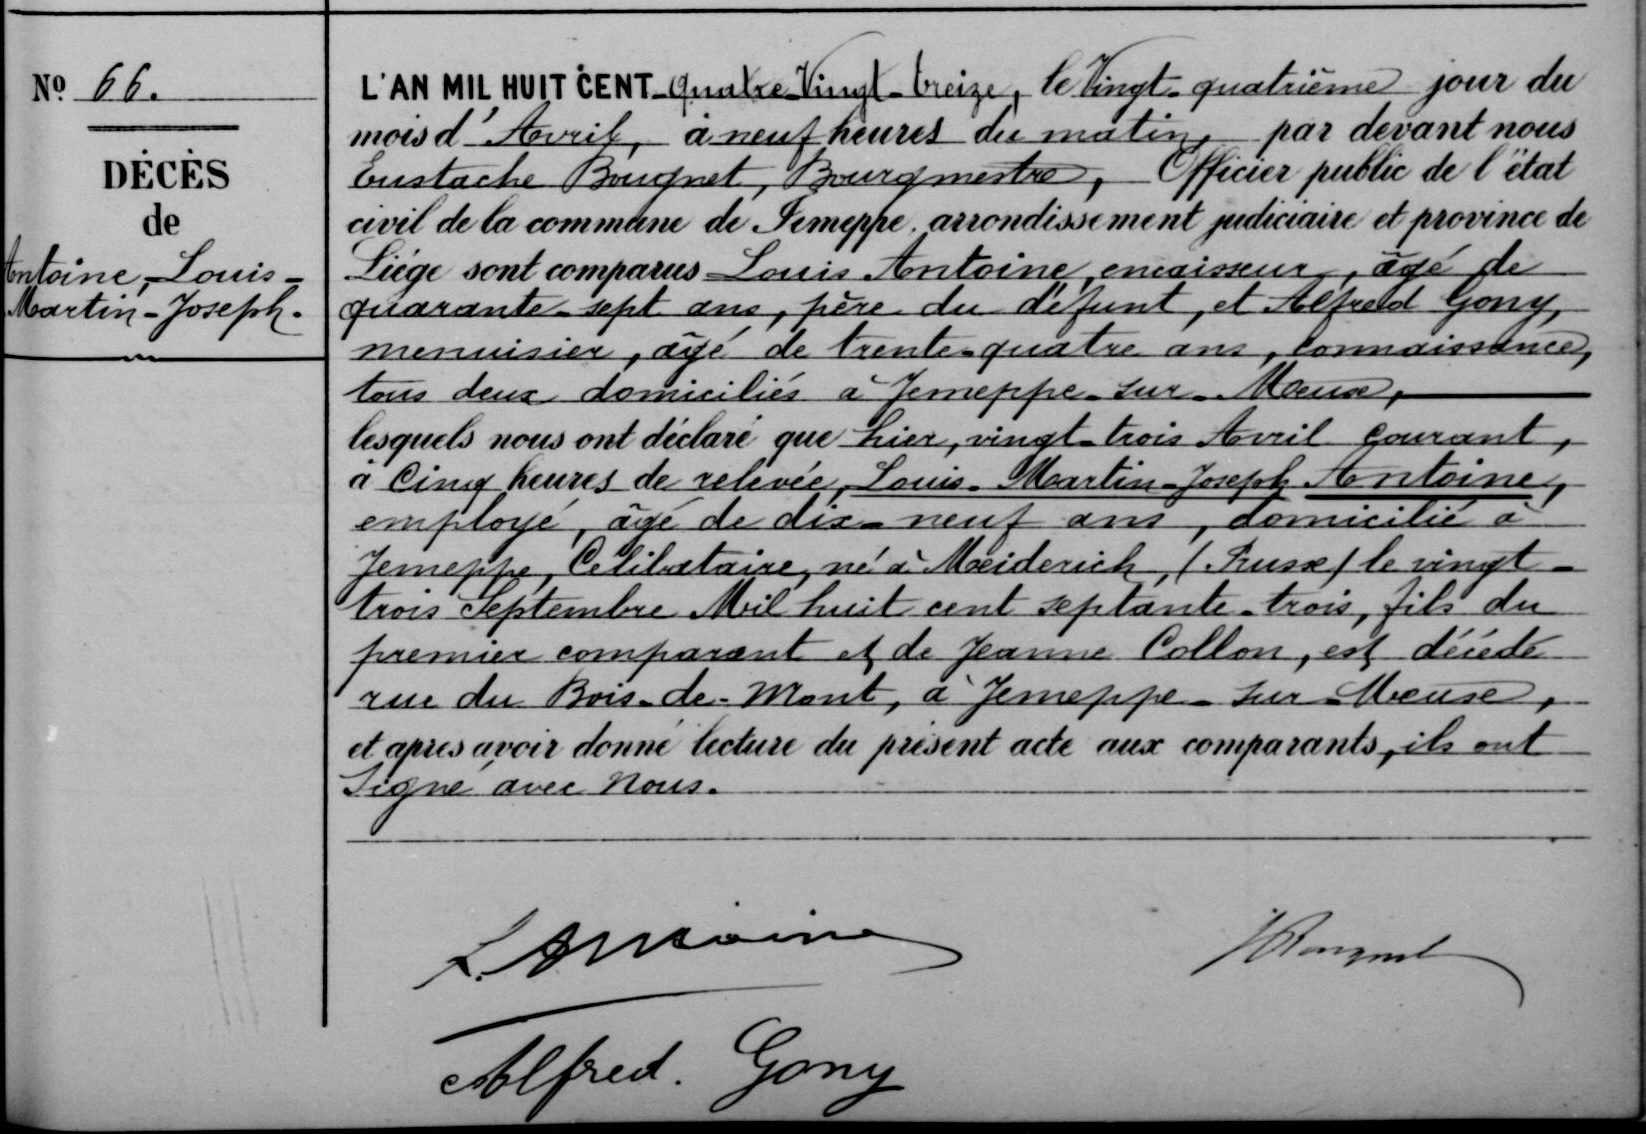 Nº 66.
DÉCÈS
de
Antoine, Louis-
Martin-Joseph.
L'AN MIL HUIT CENT quatre-Vingt-treize, le Vingt-quatrième jour du
mois d'Avril, à neuf heures du matin, par devant nous
Eustache Bougnet, Bourgmestre, Officier public de l'état
civil de la commune de Jemeppe, arrondissement judiciaire et province de
Liége sont comparus Louis Antoine, encaisseur, âgé de
quarante-sept ans, père du défunt, et Alfred Gony,
menuisier, âgé de trente-quatre ans, connaissance,
tous deux domiciliés à Jemeppe-sur-Meuse,
lesquels nous ont déclaré que hier, vingt-trois Avril courant,
à Cinq heures de relevée, Louis-Martin-Joseph Antoine,
employé, âgé de dix-neuf ans, domicilié à
Jemeppe, Célibataire, né à Meiderich, (Prusse) le vingt-
trois Septembre Mil huit cent septante-trois, fils du
premier comparant et de Jeanne Collon, est décédé
rue du Bois-de-Mont, à Jemeppe-sur-Meuse,
et après avoir donné lecture du présent acte aux comparants, ils ont
Signé avec Nous.
L. Antoine
Alfred. Gony